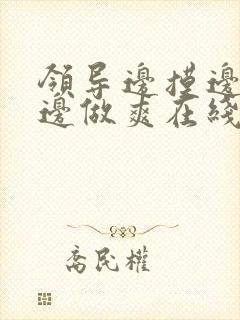 領导邊摸邊
邊做爽在綫
喬民權